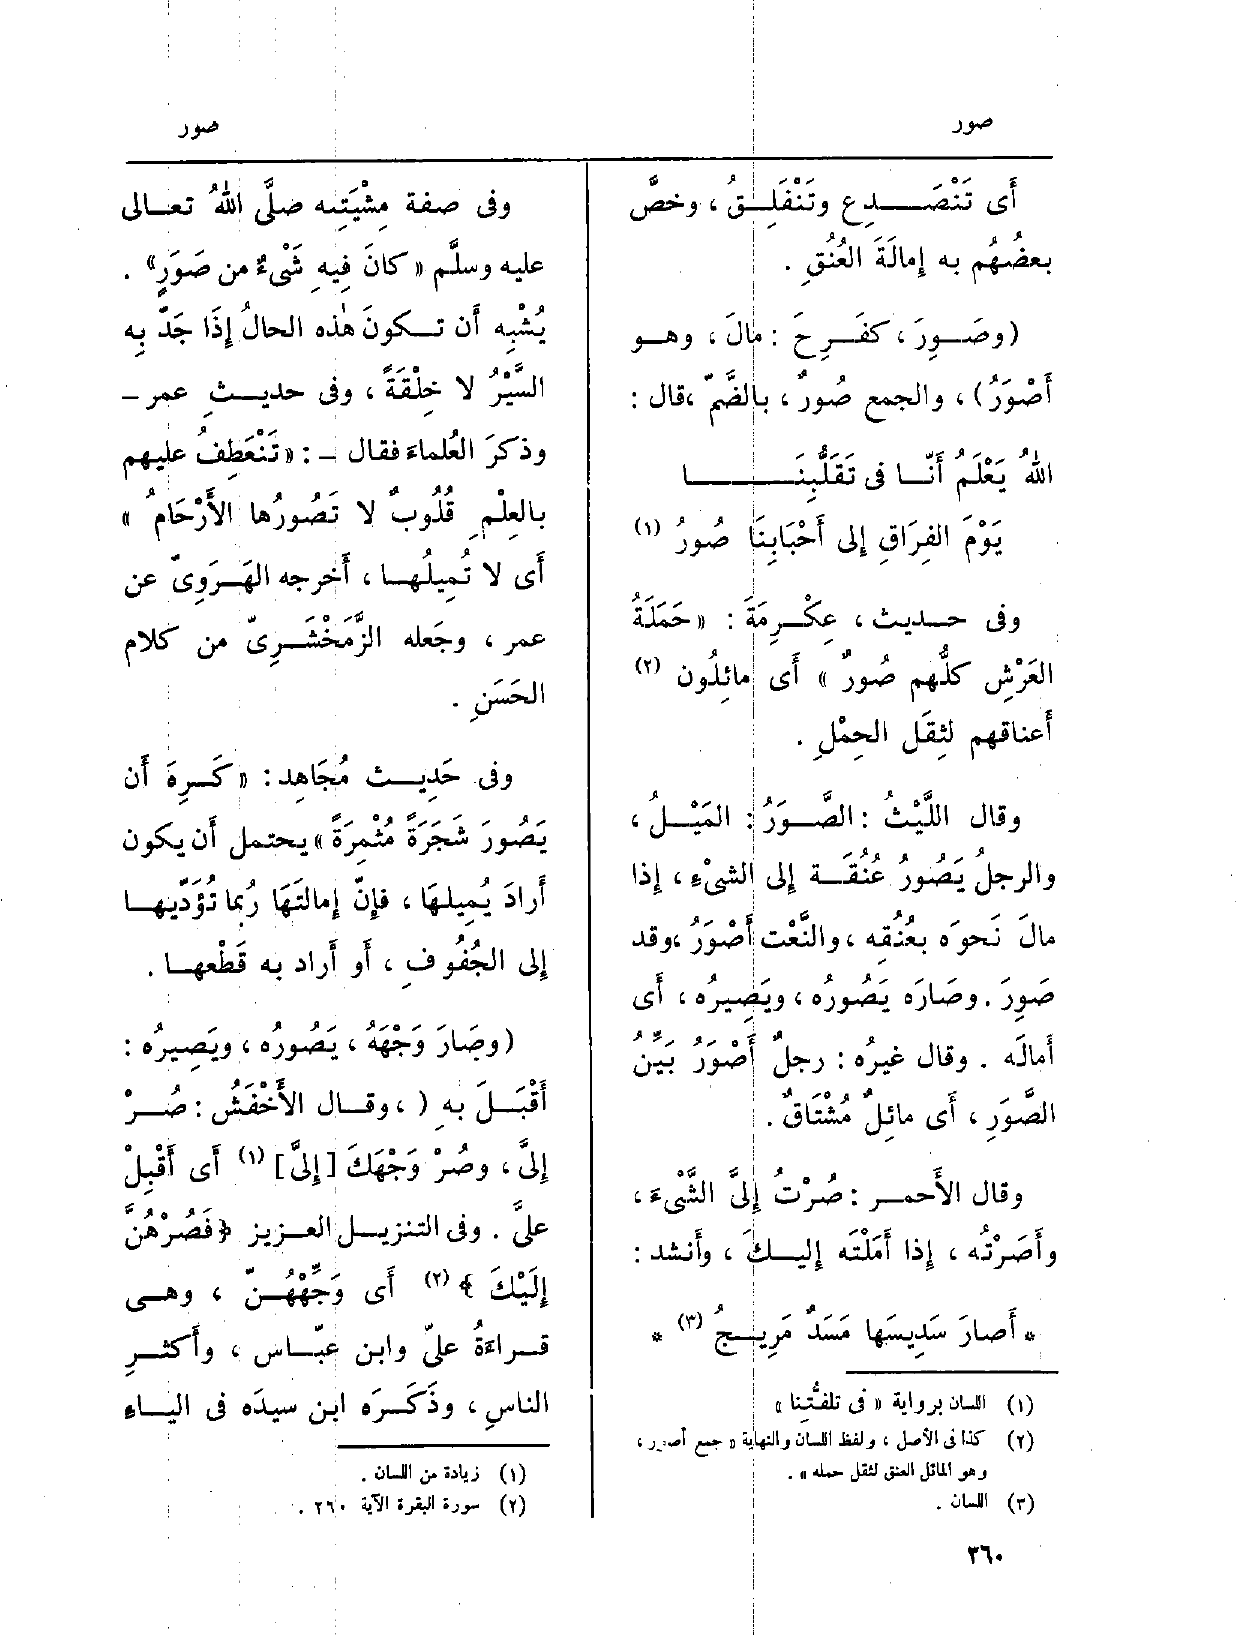 صور
صور
أى تَنْصَـــدِع وتَنْفَلِــقُ ، وخصَّ
بعضُهُم به إِمالَةَ العُنُقِ .
(وصَــوِرَ ، كفَــرِحَ : مالَ ، وهــو
أَصْوَرُ) ، والجمع صُورٌ ، بالضَّمّ ، قال :
اللهُ يَعْلَمُ أَنَّــا فى تَقَلُّبِنَـــــــا
يَوْمَ الفِرَاقِ إِلى أَحْبَابِنَا صُورُ (١)
وفى حــديث ، عِكْــرِمَةَ : « حَمَلَةُ
العَرْشِ كلُّهم صُورٌ » أى مائِلُون (٢)
أَعناقهم لثِقَل الحِمْلِ .
وقال اللَّيْثُ : الصَّــوَرُ : المَيْــلُ ،
والرجلُ يَصُورُ عُنُقَــه إِلى الشىْءِ ، إِذا
مالَ نَحوَه بعُنُقِه ، والنَّعْت أَصْوَرُ ، وقد
صَوِرَ . وصَارَه يَصُورُه ، ويَصِيرُه ، أى
أَمالَه . وقال غيرُه : رجلٌ أَصْوَرُ بَيِّنُ
الصَّوَرِ ، أى مائِلٌ مُشْتاقٌ .
وقال الأَحمــر : صُرْتُ إِلىَّ الشَّىْءَ ،
وأَصَرْتُه ، إِذا أَمَلْتَه إِليــكَ ، وأنشد :
* أَصارَ سَدِيسَها مَسَدٌ مَرِيــجُ (٣) *
(١) اللسان برواية « فى تلفُّتنا »
(٢) كذا فى الأصل ، ولفظ اللسان والنهاية « جمع أصور ،
وهو المائل العنق لثقل حمله » .
(٣) اللسان .
٣٦٠
وفى صفة مِشْيَتِه صلَّى اللهُ تعــالى
عليه وسلَّم « كانَ فِيهِ شَىْءٌ من صَوَرٍ » .
يُشْبِه أن تــكونَ هٰذه الحالُ إِذَا جَدَّ بِه
السَّيْرُ لا خِلْقَةً ، وفى حديــثِ عمر –
وذكرَ العُلماءَ فقال – : « تَنْعَطِفُ عليهم
بالعِلْمِ قُلُوبٌ لا تَصُورُها الأَرْحَامُ »
أى لا تُمِيلُهــا ، أخرجه الهَــرَوِىّ عن
عمر ، وجَعله الزَّمَخْشَــرِىّ من كلام
الحَسَنِ .
وفى حَدِيــث مُجَاهد : « كَــرِهَ أَن
يَصُورَ شَجَرَةً مُثْمِرَةً » يحتمل أن يكون
أَرادَ يُمِيلهَا ، فإِنّ إِمالَتَهَا رُبما تُؤَدّيهــا
إِلى الجُفُوفِ ، أَو أَراد به قَطْعهــا .
(وصَارَ وَجْهَهُ ، يَصُورُه ، ويَصِيرُه :
أَقْبَــلَ بهِ ) ، وقــال الأَخْفَشُ : صُــرْ
إِلىَّ ، وصُرْ وَجْهَكَ [إِلىَّ] (١) أى أَقْبِلْ
علىَّ . وفى التنزيــل العــزيز ﴿ فَصُرْهُنَّ
إِلَيْكَ ﴾ (٢) أى وَجِّهْهُــنّ ، وهــى
قــراءَةُ علىّ وابن عبّــاس ، وأَكثــرِ
الناسِ ، وذَكَــرَه ابن سِيدَه فى اليــاءِ
(١) زيادة من اللسان .
(٢) سورة البقرة الآية ٢٦٠ .